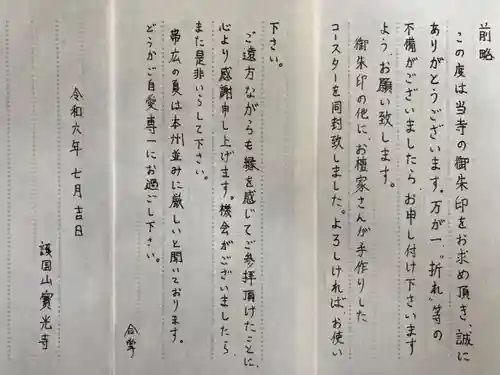 前略
この度は当寺の御朱印をお求め頂き、誠に
ありがとうございます。万が一、“折れ”等の
不備がございましたらお申し付け下さいます
よう、お願い致します。
御朱印の他に、お檀家さんが手作りした
コースターを同封致しました。よろしければお使い
下さい。
ご遠方ながらも縁を感じてご参拝頂けたことに、
心より感謝申し上げます。機会がございましたら
また是非いらして下さい。
帯広の夏は本州並みに厳しいと聞いております。
どうかご自愛専一にお過ごし下さい。
合掌
令和六年 七月吉日
護国山寳光寺